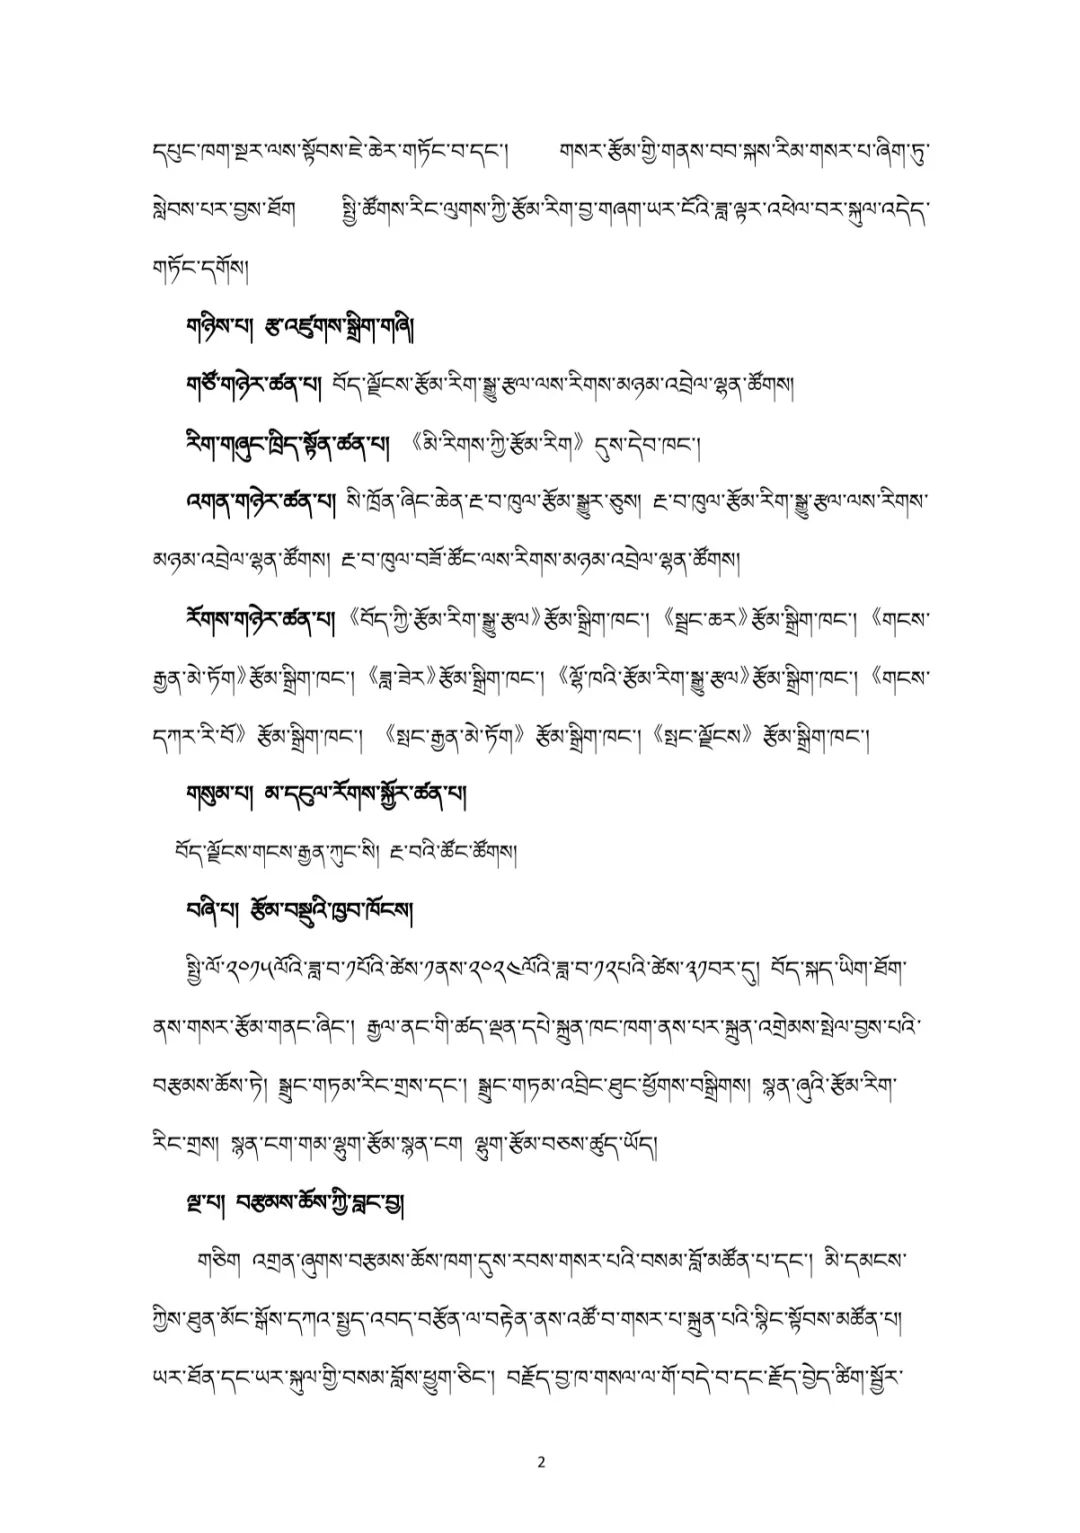 དཔུང་ཁག་སྔར་ལས་སྟོབས་ཇེ་ཆེར་གཏོང་བ་དང་། གསར་རྩོམ་གྱི་གནས་བབ་སྐས་རིམ་གསར་པ་ཞིག་ཏུ་
སླེབས་པར་བྱས་ཐོག སྤྱི་ཚོགས་རིང་ལུགས་ཀྱི་རྩོམ་རིག་བྱ་གཞག་ཡར་ངོའི་ཟླ་ལྟར་འཕེལ་བར་སྐུལ་འདེད་
གཏོང་དགོས།
གཉིས་པ། རྩ་འཛུགས་སྒྲིག་གཞི།
གཙོ་གཉེར་ཚན་པ། བོད་ལྗོངས་རྩོམ་རིག་སྒྱུ་རྩལ་ལས་རིགས་མཉམ་འབྲེལ་ལྷན་ཚོགས།
རིག་གཞུང་ཁྲིད་སྟོན་ཚན་པ། 《མི་རིགས་ཀྱི་རྩོམ་རིག》 དུས་དེབ་ཁང་།
འགན་གཉེར་ཚན་པ། སི་ཁྲོན་ཞིང་ཆེན་རྔ་བ་ཁུལ་རྩོམ་སྒྱུར་ཅུས། རྔ་བ་ཁུལ་རྩོམ་རིག་སྒྱུ་རྩལ་ལས་རིགས་
མཉམ་འབྲེལ་ལྷན་ཚོགས། རྔ་བ་ཁུལ་བཟོ་ཚོང་ལས་རིགས་མཉམ་འབྲེལ་ལྷན་ཚོགས།
རོགས་གཉེར་ཚན་པ། 《བོད་ཀྱི་རྩོམ་རིག་སྒྱུ་རྩལ》རྩོམ་སྒྲིག་ཁང་། 《སྦྲང་ཆར》རྩོམ་སྒྲིག་ཁང་། 《གངས་
རྒྱན་མེ་ཏོག》རྩོམ་སྒྲིག་ཁང་། 《ཟླ་ཟེར》རྩོམ་སྒྲིག་ཁང་། 《ལྷོ་ཁའི་རྩོམ་རིག་སྒྱུ་རྩལ》རྩོམ་སྒྲིག་ཁང་། 《གངས་
དཀར་རི་བོ》 རྩོམ་སྒྲིག་ཁང་། 《སྤང་རྒྱན་མེ་ཏོག》 རྩོམ་སྒྲིག་ཁང་། 《སྤང་ལྗོངས》 རྩོམ་སྒྲིག་ཁང་།
གསུམ་པ། མ་དངུལ་རོགས་སྐྱོར་ཚན་པ།
བོད་ལྗོངས་གངས་རྒྱན་ཀུང་སི། རྔ་བའི་ཚོང་ཚོགས།
བཞི་པ། རྩོམ་བསྡུའི་ཁྱབ་ཁོངས།
སྤྱི་ལོ་༢༠༡༥ལོའི་ཟླ་བ་༡པོའི་ཚེས་༡ནས་༢༠༢༤ལོའི་ཟླ་བ་༡༢པའི་ཚེས་༣༡བར་དུ། བོད་སྐད་ཡིག་ཐོག་
ནས་གསར་རྩོམ་གནང་ཞིང་། རྒྱལ་ནང་གི་ཚད་ལྡན་དཔེ་སྐྲུན་ཁང་ཁག་ནས་པར་སྐྲུན་འགྲེམས་སྤེལ་བྱས་པའི་
བརྩམས་ཆོས་ཏེ། སྒྲུང་གཏམ་རིང་གྲས་དང་། སྒྲུང་གཏམ་འབྲིང་ཐུང་ཕྱོགས་བསྒྲིགས། སྙན་ཞུའི་རྩོམ་རིག་
རིང་གྲས། སྙན་ངག་གམ་ལྷུག་རྩོམ་སྙན་ངག ལྷུག་རྩོམ་བཅས་ཚུད་ཡོད།
ལྔ་པ། བརྩམས་ཆོས་ཀྱི་བླང་བྱ།
གཅིག འགྲན་ཞུགས་བརྩམས་ཆོས་ཁག་དུས་རབས་གསར་པའི་བསམ་བློ་མཚོན་པ་དང་། མི་དམངས་
ཀྱིས་ཐུན་མོང་སྒོས་དཀའ་སྤྱད་འབད་བརྩོན་ལ་བརྟེན་ནས་འཚོ་བ་གསར་པ་སྐྲུན་པའི་སྙིང་སྟོབས་མཚོན་པ།
ཡར་ཐོན་དང་ཡར་སྐུལ་གྱི་བསམ་བློས་ཕྱུག་ཅིང་། བརྗོད་བྱ་ཁ་གསལ་ལ་གོ་བདེ་བ་དང་རྗོད་བྱེད་ཚིག་སྦྱོར་
2